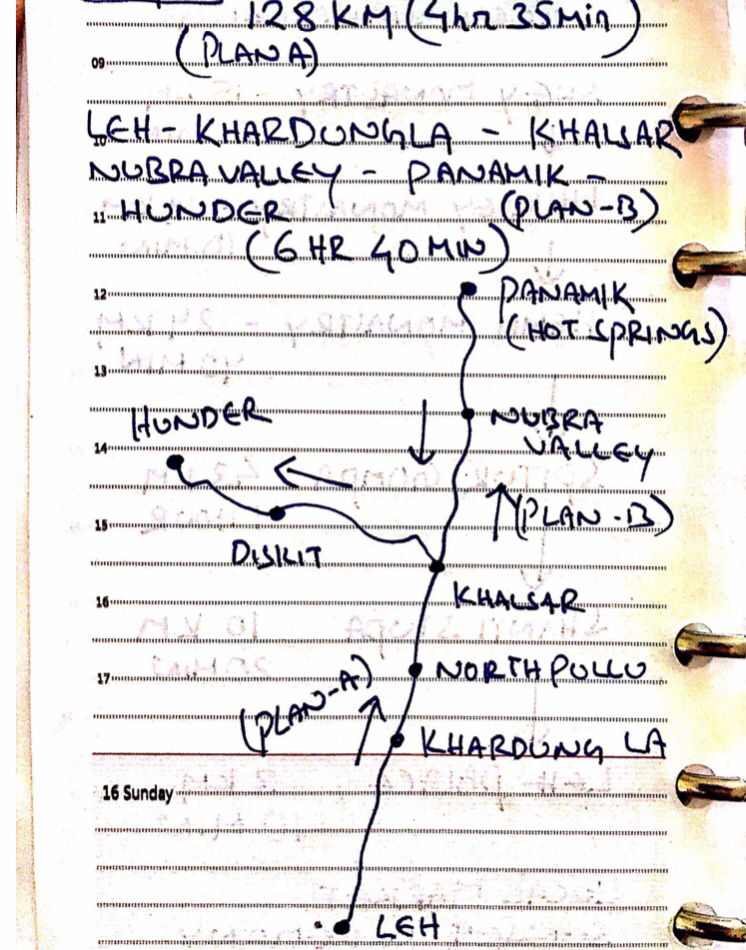 128 KM (4hr 35Min)
(PLAN A)
09
LEH - KHARDUNGLA - KHALSAR
10
NUBRA VALLEY - PANAMIK -
11 HUNDER (PLAN-B)
(6 HR 40 MIN)
12 PANAMIK
(HOT SPRINGS)
13
HUNDER NUBRA
14 VALLEY
(PLAN-B)
15
DISKIT
16 KHALSAR
17 NORTH PULLU
(PLAN-A)
KHARDUNG LA
16 Sunday
LEH